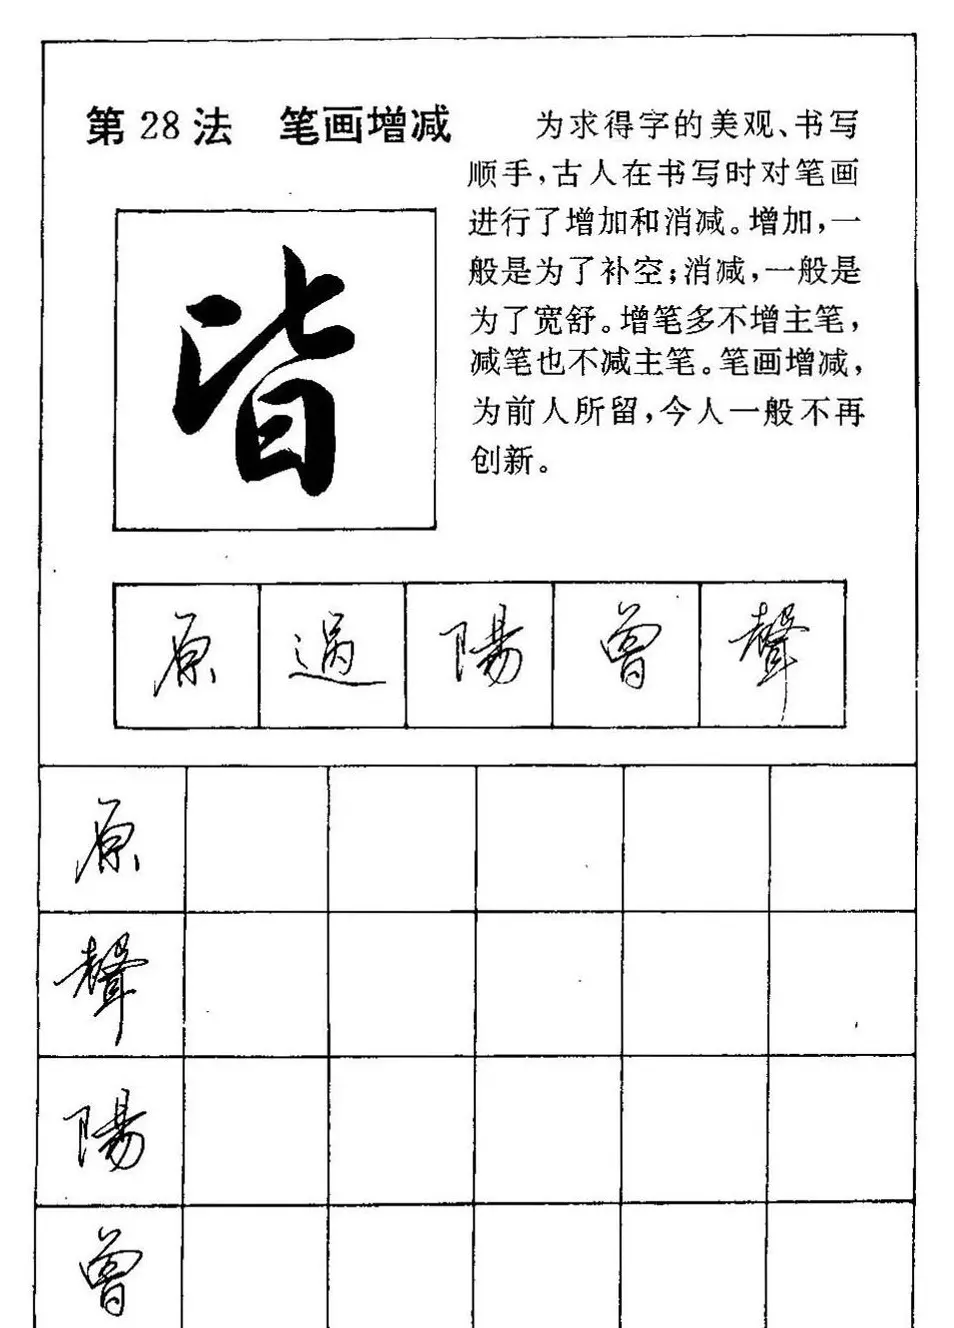 第28法 笔画增减
为求得字的美观、书写
顺手,古人在书写时对笔画
进行了增加和消减。增加,一
般是为了补空;消减,一般是
为了宽舒。增笔多不增主笔,
减笔也不减主笔。笔画增减,
为前人所留,今人一般不再
创新。
皆
原 過 陽 曾 聲
原
聲
陽
曾